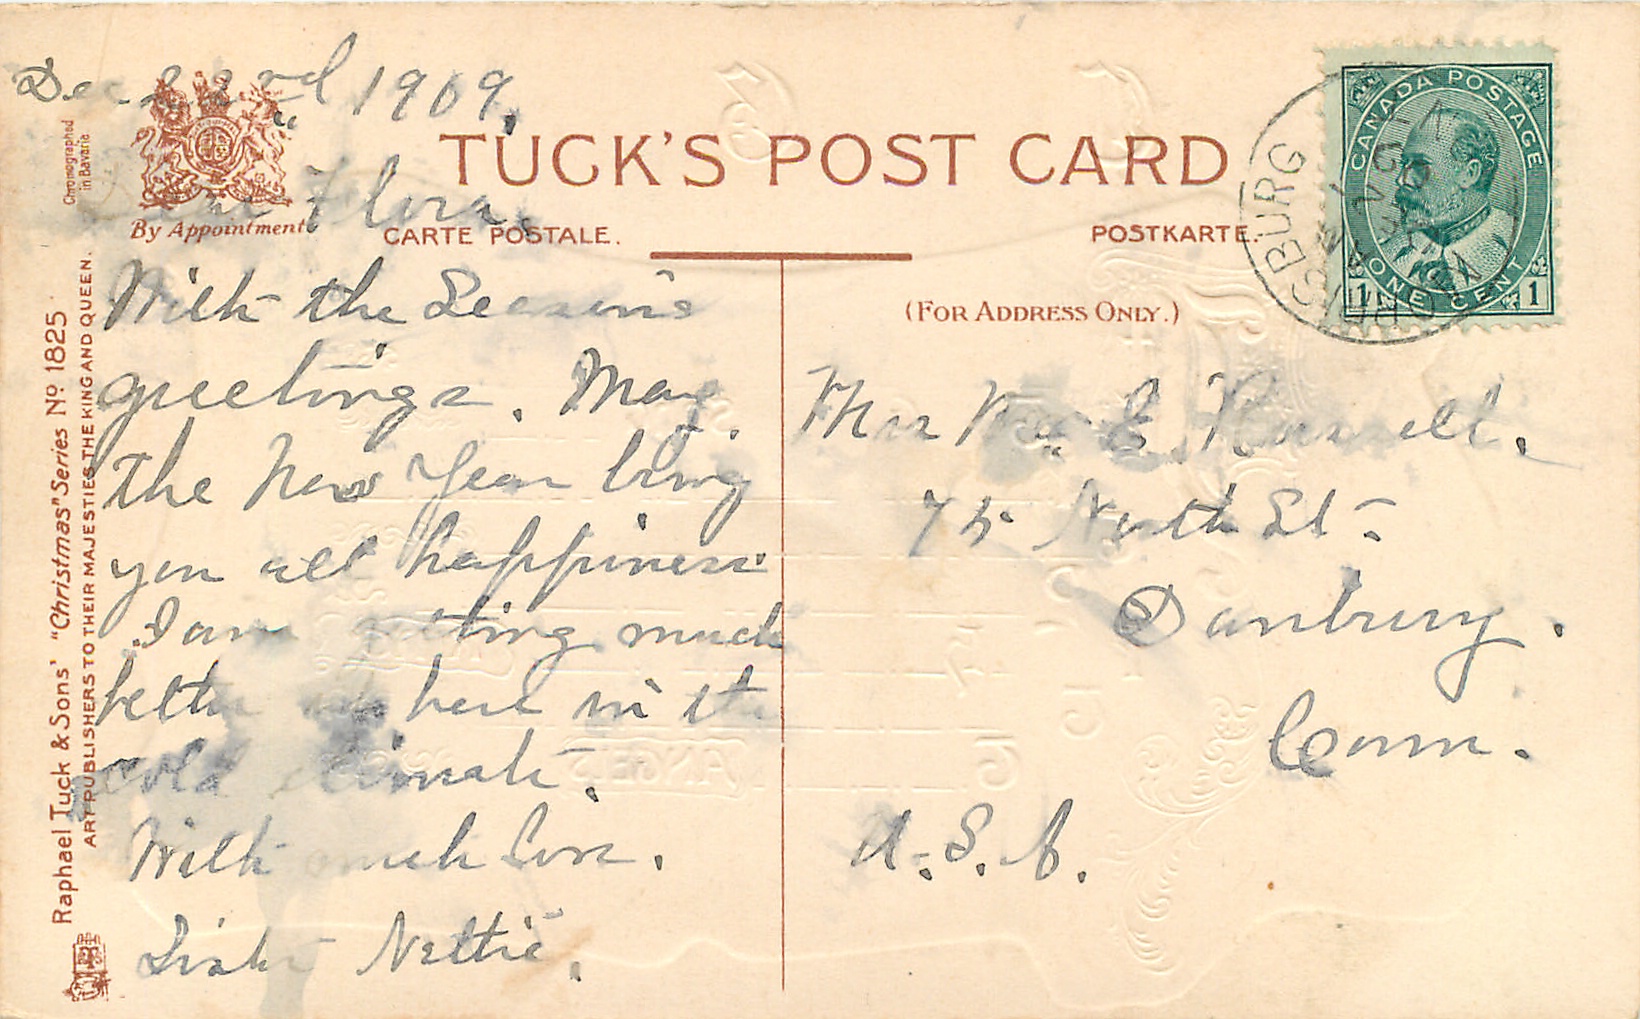 Dec. 22nd 1909.
Chromographed
in Bavaria
By Appointment
TUCK'S POST CARD
CARTE POSTALE.
POSTKARTE.
(FOR ADDRESS ONLY.)
CANADA POSTAGE
ONE CENT
1 1
BURG
Dear Flora.
With the Season's
greetings. May
the New Year bring
you all happiness
I am getting much
better up here in the
cold climate.
With much love.
Sister Nettie.
Mrs Wm. E. Russell.
75 North St-
Danbury.
Conn.
U.S.A.
Raphael Tuck & Sons' "Christmas" Series No 1825.
ART PUBLISHERS TO THEIR MAJESTIES THE KING AND QUEEN.
ANGELS